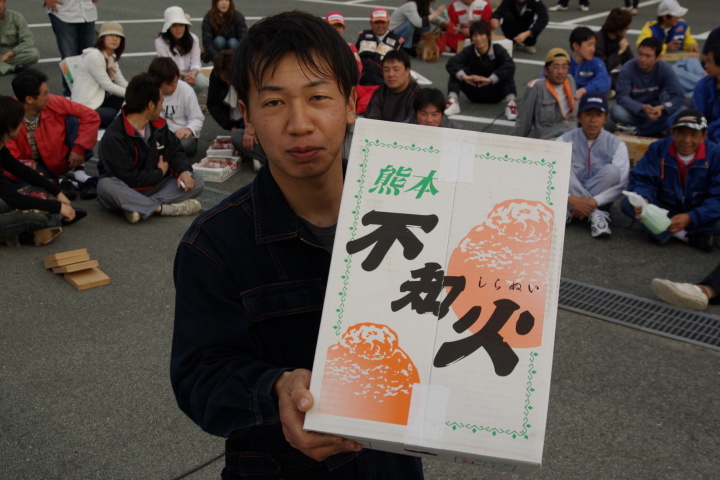 熊本
不知火
しらぬい